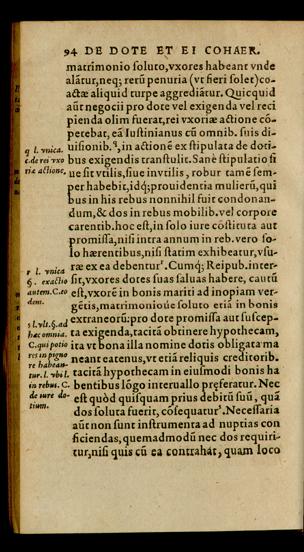 94 DE DOTE ET EI COHAER.
matrimonio soluto, vxores habeant vnde
alãtur, neq; rerũ penuria (vt fieri solet) co-
actæ aliquid turpe aggrediãtur. Quicquid
aũt negocii pro dote vel exigenda vel reci
pienda olim fuerat, rei vxoriæ actione cõ-
petebat, eã Iustinianus cũ omnib. suis di-
uisionib. q, in actionẽ ex stipulata de doti-
bus exigendis transtulit. Sanè stipulatio si
ue sit vtilis, siue invtilis, robur tamẽ sem-
per habebit, idq́; prouidentia mulierũ, qui
bus in his rebus nonnihil fuit condonan-
dum, & dos in rebus mobilib. vel corpore
carentib. hoc est, in solo iure cõstituta aut
promissa, nisi intra annum in reb. vero so-
lo hærentibus, nisi statim exhibeatur, vsu-
ræ ex ea debentur r. Cumq́; Reipub. inter-
sit, vxores dotes suas saluas habere, cautũ
est, vxorẽ in bonis mariti ad inopiam ver-
gẽtis, matrimonioúe soluto etiã in bonis
extraneorũ: pro dote promissa aut suscep-
ta exigenda, tacitã obtinere hypothecam,
ita vt bona illa nomine dotis obligata ma
neant eatenus, vt etiã reliquis creditorib.
tacitã hypothecam in eiusmodi bonis ha
bentibus lõgo interuallo præferatur. Nec
est quòd quisquam prius debitũ suũ, quã
dos soluta fuerit, cõsequatur s. Necessaria
aũt non sunt instrumenta ad nuptias con
ficiendas, quemadmodũ nec dos requiri-
tur, nisi quis cũ ea contrahãt, quam loco
q l. vnica.
C. de rei vxo
riæ actione.
r l. vnica
§. exactio
autem. C. eo
dem.
s l. vlt. §. ad
hæc omnia.
C. qui potio
res in pigno
re habean-
tur. l. vbi l.
in rebus. C.
de iure do-
tium.